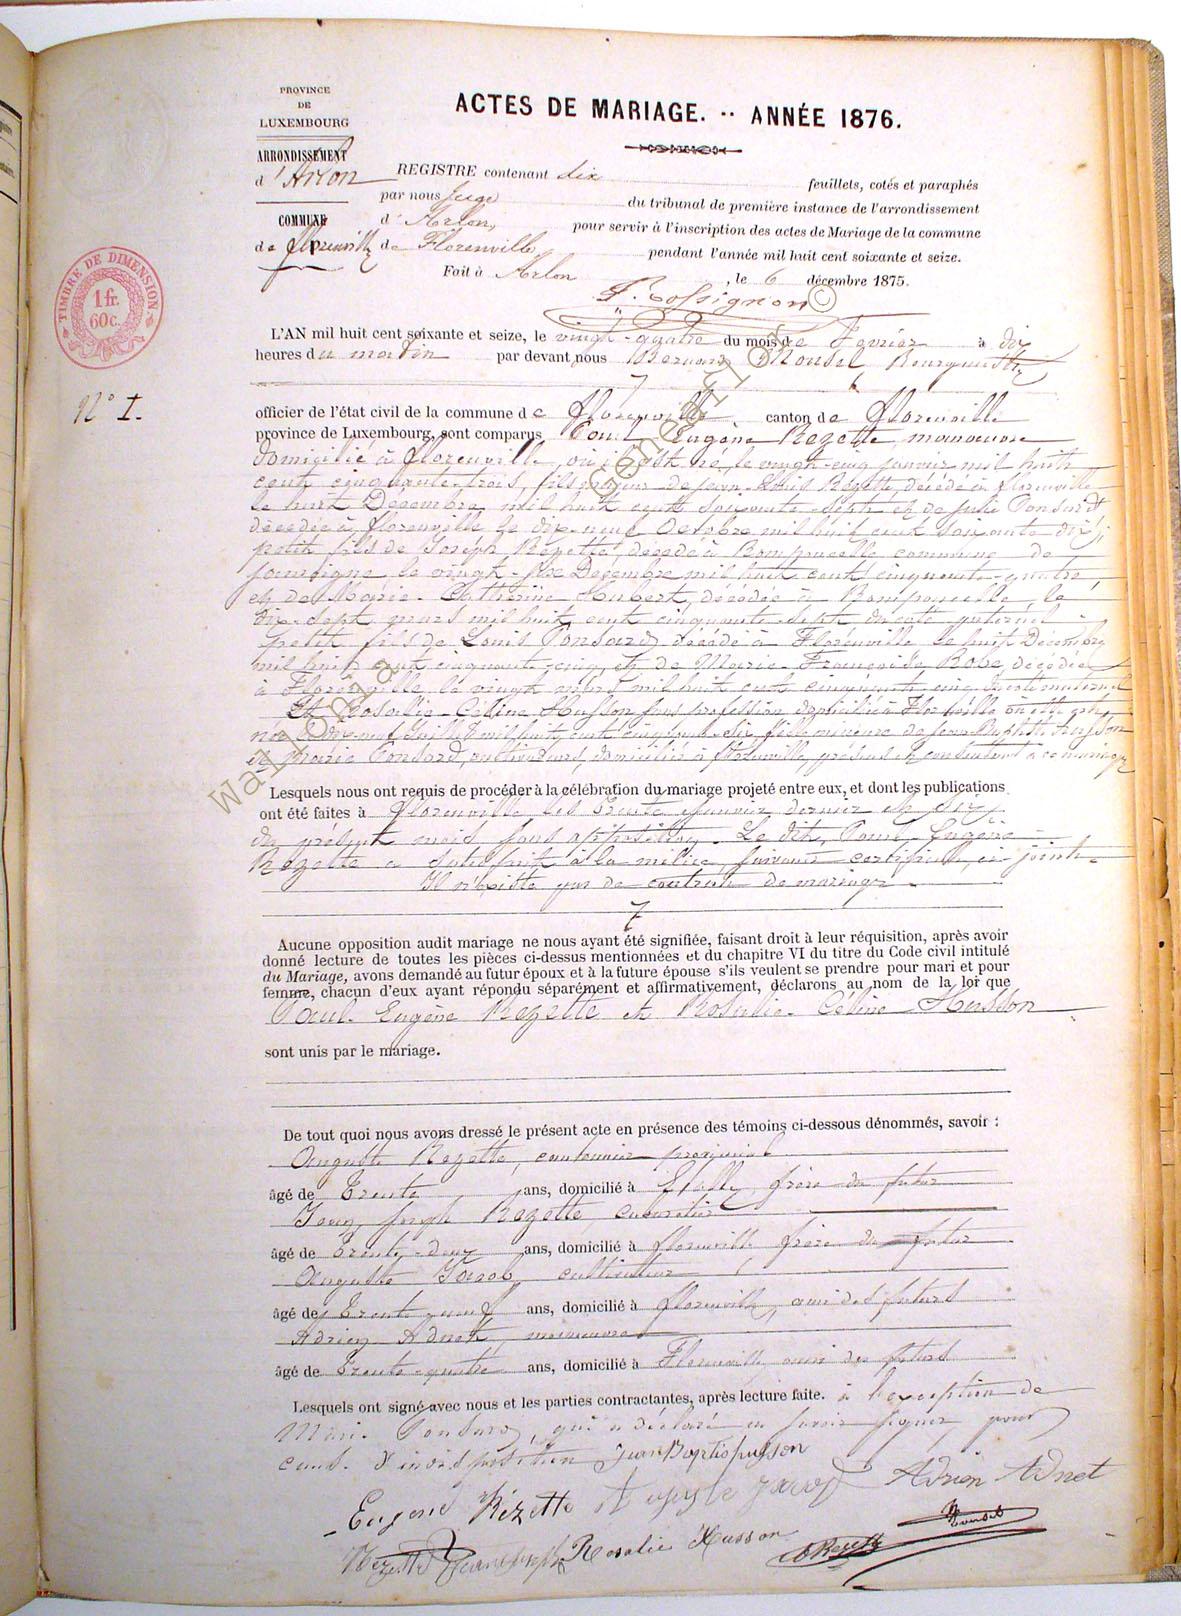 PROVINCE
DE
LUXEMBOURG
ARRONDISSEMENT
d'Arlon
COMMUNE
de Florenville
ACTES DE MARIAGE. -- ANNÉE 1876.
REGISTRE contenant dix feuillets, cotés et paraphés
par nous Juge du tribunal de première instance de l'arrondissement
d'Arlon, pour servir à l'inscription des actes de Mariage de la commune
de Florenville pendant l'année mil huit cent soixante et seize.
Fait à Arlon, le 6 décembre 1875.
TIMBRE DE DIMENSION.
1 fr.
60 c.
N° 1.
L'AN mil huit cent soixante et seize, le vingt-quatre du mois de Fevrier à dix
heures du matin par devant nous Bernard Noudel, Bourgmestre
officier de l'état civil de la commune de Florenville canton de Florenville
province de Luxembourg, sont comparus Paul Eugène Rezette manoeuvre
domicilié à Florenville, où il est né, le vingt-cinq janvier mil huit
cent cinquante-trois, fils majeur de Jean-Louis Rézette, décédé à Florenville
le huit Décembre mil huit cent soixante-sept et de Julie Ponsard
décédée à Florenville le dix-neuf Octobre mil huit cent soixante dix;
petit fils de Joseph Rezette, décédé à commune de
le vingt-six Decembre mil huit cent cinquante-quatre
et de Marie-Catherine Hubert, décédée à le
dix-sept mars mil huit cent cinquante-sept du côté paternel
petit fils de Louis Ponsard décédé à Florenville le huit Décembre
mil huit cent cinquante-cinq, et de Marie-Françoise décédée
à Florenville le vingt mars mil huit cent cinquante cinq du côté maternel
Et Rosalie-Céline Husson sans profession domiciliée à Florenville où elle est
née le dix-neuf juillet mil huit cent cinquante-six, fille mineure de Jean Baptiste Husson
et Marie Ponsard, cultivateurs, domiciliés à Florenville, présens et consentant à ce mariage
Lesquels nous ont requis de procéder à la célébration du mariage projeté entre eux, et dont les publications
ont été faites à Florenville les trente Janvier dernier et six
du présent mois sans opposition. Le dit, Paul-Eugène
Rezette a satisfait à la milice suivant certificat ci-joint.
Il n'existe pas de contrat de mariage.
Aucune opposition audit mariage ne nous ayant été signifiée, faisant droit à leur réquisition, après avoir
donné lecture de toutes les pièces ci-dessus mentionnées et du chapitre VI du titre du Code civil intitulé
du Mariage, avons demandé au futur époux et à la future épouse s'ils veulent se prendre pour mari et pour
femme, chacun d'eux ayant répondu séparément et affirmativement, déclarons au nom de la loi que
Paul-Eugène Rezette et Rosalie-Céline Husson
sont unis par le mariage.
De tout quoi nous avons dressé le présent acte en présence des témoins ci-dessous dénommés, savoir :
Auguste Rezette, cantonnier provincial
âgé de Trente ans, domicilié à Etalle, frère du futur
Jean Joseph Rezette,
âgé de Trente-deux ans, domicilié à Florenville frère du futur
Auguste Jacob, cultivateur
âgé de Trente-neuf ans, domicilié à Florenville, ami des futurs
Adrien Adnet, manoeuvre
âgé de Trente-quatre ans, domicilié à Florenville, ami des futurs
Lesquels ont signé avec nous et les parties contractantes, après lecture faite. à l'exception de
Marie Ponsard, qui a déclaré ne savoir signer, pour
cause d'indisposition Jean Baptis husson
Eugene Rézette Auguste Jacob Adrien Adnet
Rezette Jean Joseph Rosalie Husson A Rezette
wallonia genealogy ©